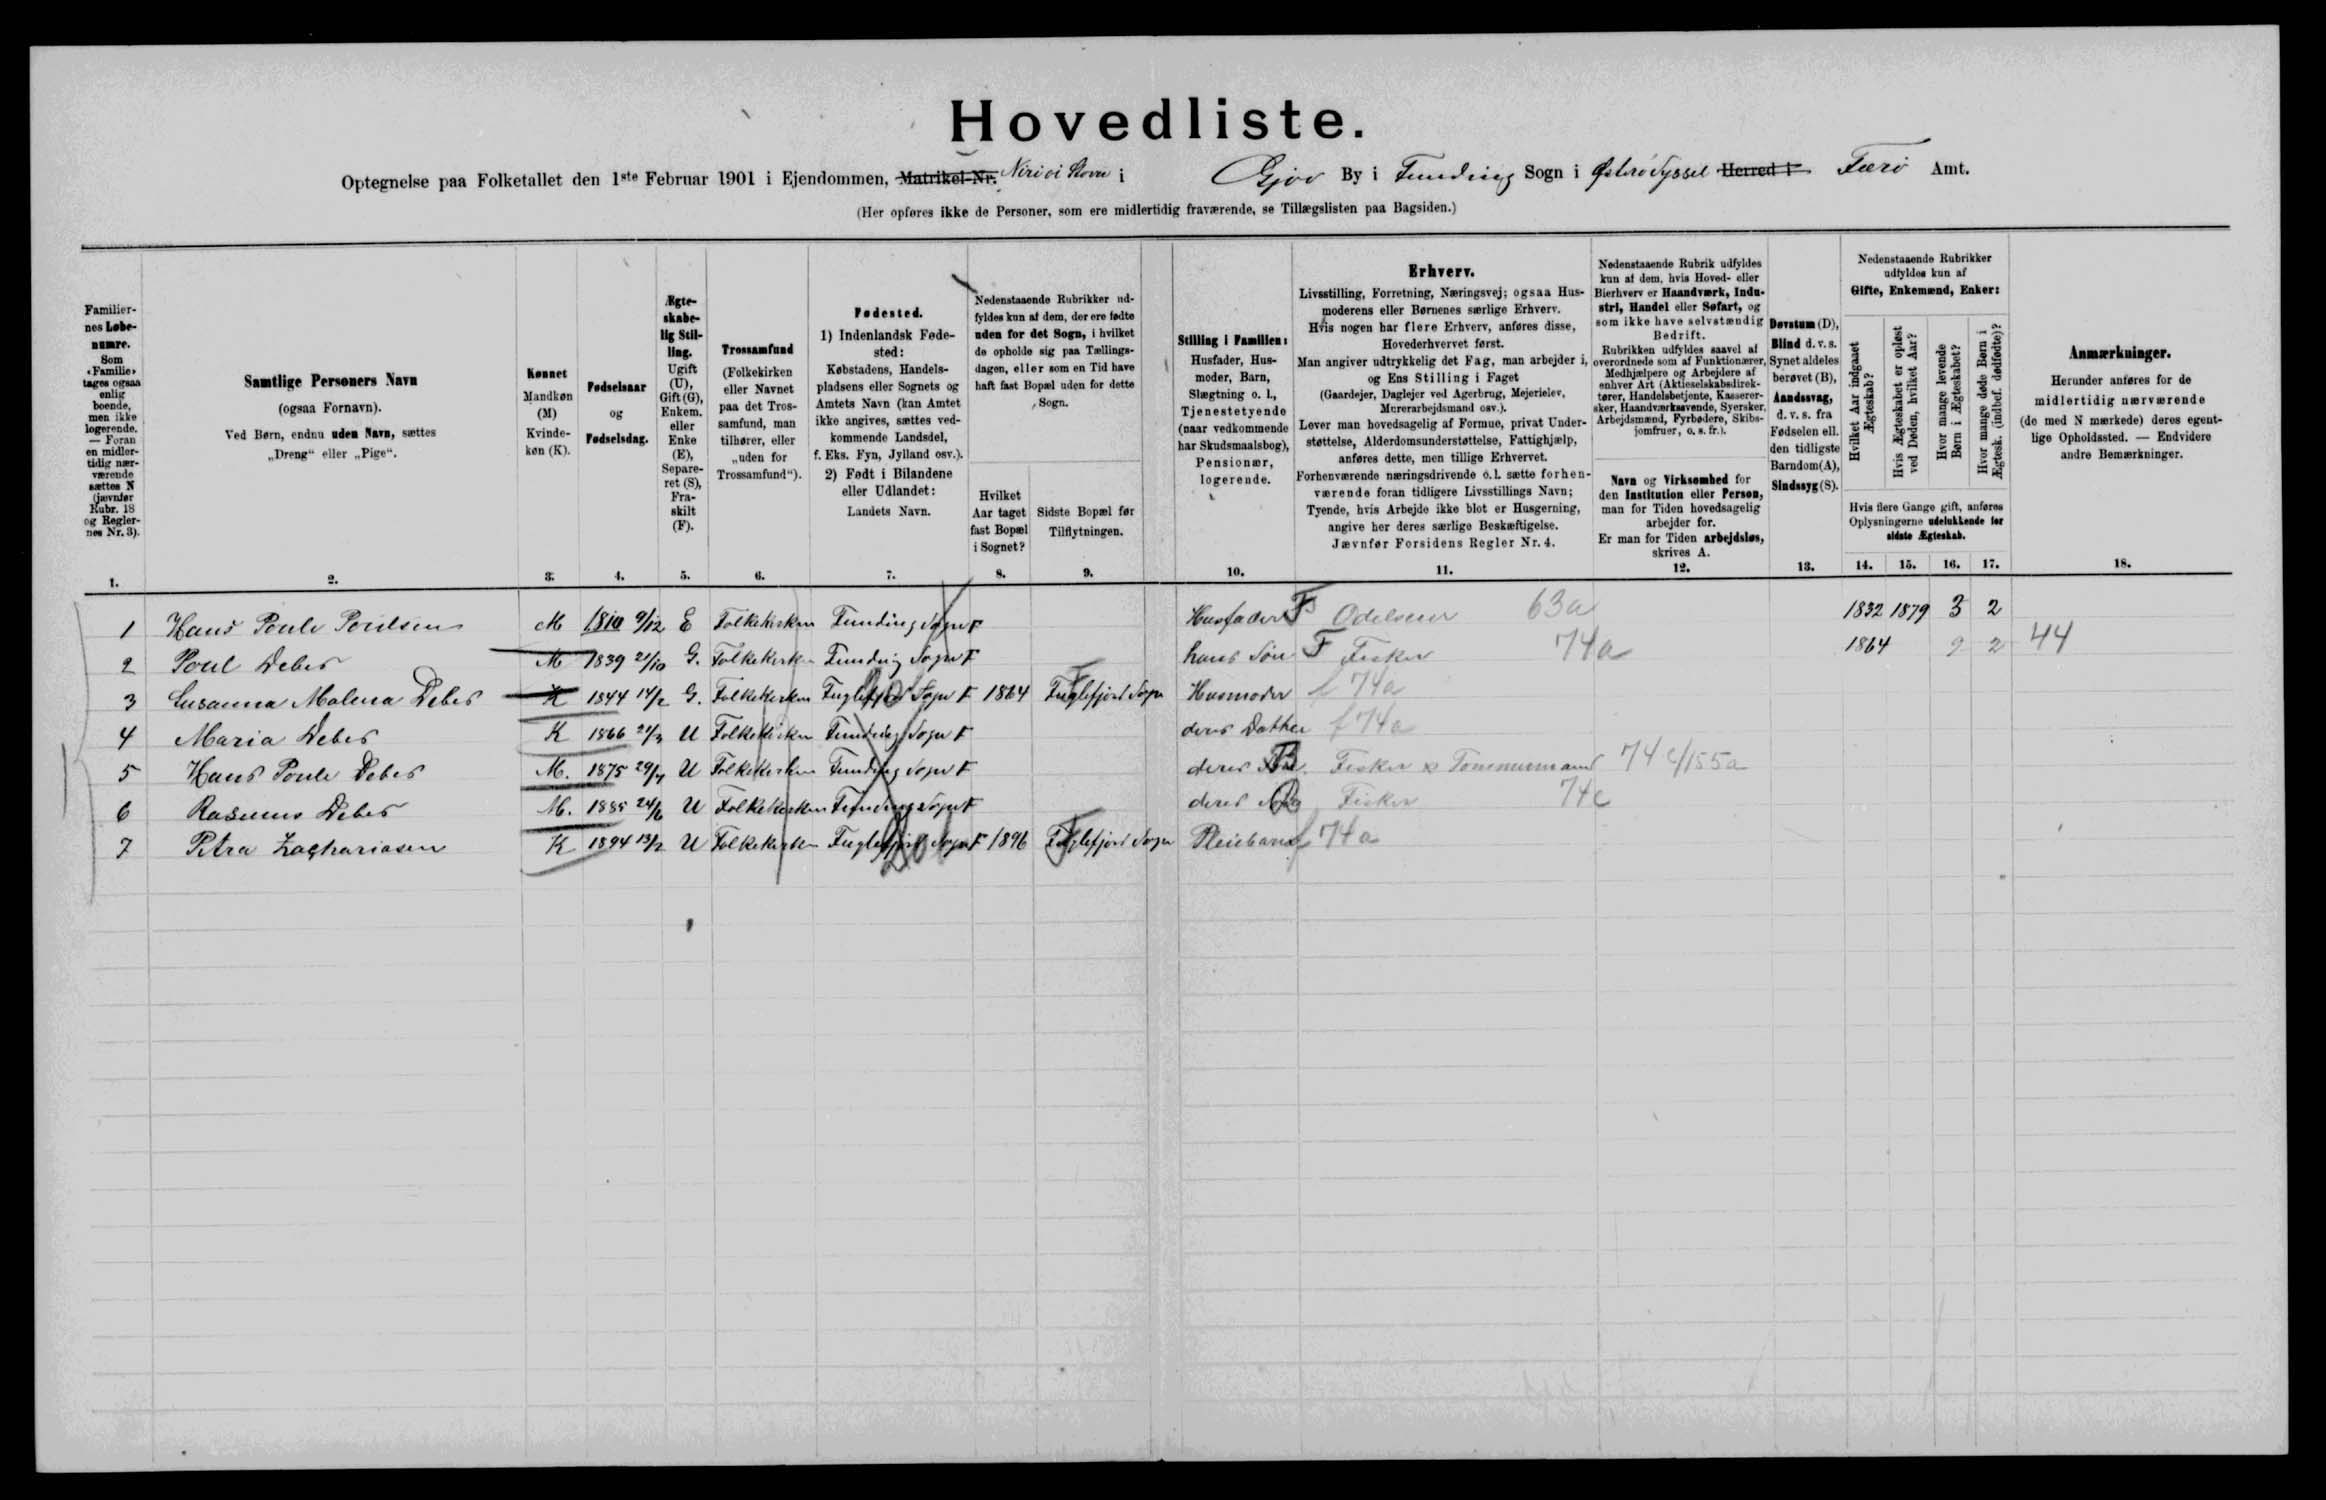 Hovedliste.
Optegnelse paa Folketallet den 1ste Februar 1901 i Ejendommen, Matrikel-Nr. i Gjov By i Funding Sogn i Østerø Syssel Herred i Færø Amt.
(Her opføres ikke de Personer, som ere midlertidig fraværende, se Tillægslisten paa Bagsiden.)
Familiernes Løbenumre. Som «Familie» tages ogsaa enlig boende, men ikke logerende. — Foran en midlertidig nærværende sættes N (jævnfør Rubr. 18 og Reglernes Nr. 3).
Samtlige Personers Navn (ogsaa Fornavn). Ved Børn, endnu uden Navn, sættes „Dreng“ eller „Pige“.
Kønnet Mandkøn (M) Kvindekøn (K).
Fødselsaar og Fødselsdag.
Ægteskabelig Stilling. Ugift (U), Gift (G), Enkem. eller Enke (E), Separeret (S), Fraskilt (F).
Trossamfund (Folkekirken eller Navnet paa det Trossamfund, man tilhører, eller „uden for Trossamfund“).
Fødested. 1) Indenlandsk Fødested: Købstadens, Handelspladsens eller Sognets og Amtets Navn (kan Amtet ikke angives, sættes vedkommende Landsdel, f. Eks. Fyn, Jylland osv.). 2) Født i Bilandene eller Udlandet: Landets Navn.
Nedenstaaende Rubrikker udfyldes kun af dem, der ere fødte uden for det Sogn, i hvilket de opholde sig paa Tællingsdagen, eller som en Tid have haft fast Bopæl uden for dette Sogn.
Hvilket Aar taget fast Bopæl i Sognet?
Sidste Bopæl før Tilflytningen.
Stilling i Familien: Husfader, Husmoder, Barn, Slægtning o. l., Tjenestetyende (naar vedkommende har Skudsmaalsbog), Pensionær, logerende.
Erhverv.
Livsstilling, Forretning, Næringsvej; ogsaa Husmoderens eller Børnenes særlige Erhverv.
Hvis nogen har flere Erhverv, anføres disse, Hovederhvervet først.
Man angiver udtrykkelig det Fag, man arbejder i, og Ens Stilling i Faget
(Gaardejer, Daglejer ved Agerbrug, Mejerielev, Murerarbejdsmand osv.).
Lever man hovedsagelig af Formue, privat Understøttelse, Alderdomsunderstøttelse, Fattighjælp, anføres dette, men tillige Erhvervet.
Forhenværende næringsdrivende o. l. sætte forhenværende foran tidligere Livsstillings Navn;
Tyende, hvis Arbejde ikke blot er Husgerning, angive her deres særlige Beskæftigelse.
Jævnfør Forsidens Regler Nr. 4.
Nedenstaaende Rubrik udfyldes kun af dem, hvis Hoved- eller Bierhverv er Haandværk, Industri, Handel eller Søfart, og som ikke have selvstændig Bedrift.
Rubrikken udfyldes saavel af overordnede som af Funktionærer, Medhjælpere og Arbejdere af enhver Art (Aktieselskabsdirektører, Handelsbetjente, Kasserersker, Haandværkssvende, Syersker, Arbejdsmænd, Fyrbødere, Skibsjomfruer, o. s. fr.).
Navn og Virksomhed for den Institution eller Person, man for Tiden hovedsagelig arbejder for.
Er man for Tiden arbejdsløs, skrives A.
Døvstum (D), Blind d. v. s. Synet aldeles berøvet (B), Aandssvag, d. v. s. fra Fødselen ell. den tidligste Barndom (A), Sindssyg (S).
Nedenstaaende Rubrikker udfyldes kun af Gifte, Enkemænd, Enker:
Hvilket Aar indgaaet Ægteskab?
Hvis Ægteskabet er opløst ved Døden, hvilket Aar?
Hvor mange levende Børn i Ægteskabet?
Hvor mange døde Børn i Ægtesk. (indbef. dødfødte)?
Hvis flere Gange gift, anføres Oplysningerne udelukkende for sidste Ægteskab.
Anmærkninger.
Herunder anføres for de midlertidig nærværende (de med N mærkede) deres egentlige Opholdssted. — Endvidere andre Bemærkninger.
1. 2. 3. 4. 5. 6. 7. 8. 9. 10. 11. 12. 13. 14. 15. 16. 17. 18.
1 Hans Poule Poulsen M 1810 9/12 E Folkekirken Funding Sogn F Husfader F Odelsmen 63a 1832 1879 3 2
2 Poul Debes M 1839 21/10 G. Folkekirken Funding Sogn F hans Søn F Fisker 74a 1864 9 2 44
3 Susanna Malena Debes K 1844 14/2 G. Folkekirken Fuglefjord Sogn F 1864 Fuglefjord Sogn Husmoder f 74a
4 Maria Debes K 1866 24/3 U Folkekirken Funding Sogn F deres Datter f 74a
5 Hans Poule Debes M. 1875 29/7 U Folkekirken Funding Sogn F deres Søn Fisker & Tømmermand 74c/155a
6 Rasmus Debes M. 1885 24/6 U Folkekirken Funding Sogn F deres Søn Fisker 74c
7 Petra Zachariasen K 1894 13/2 U Folkekirken Fuglefjord Sogn F 1896 Fuglefjord Sogn Pleiebarn f 74a